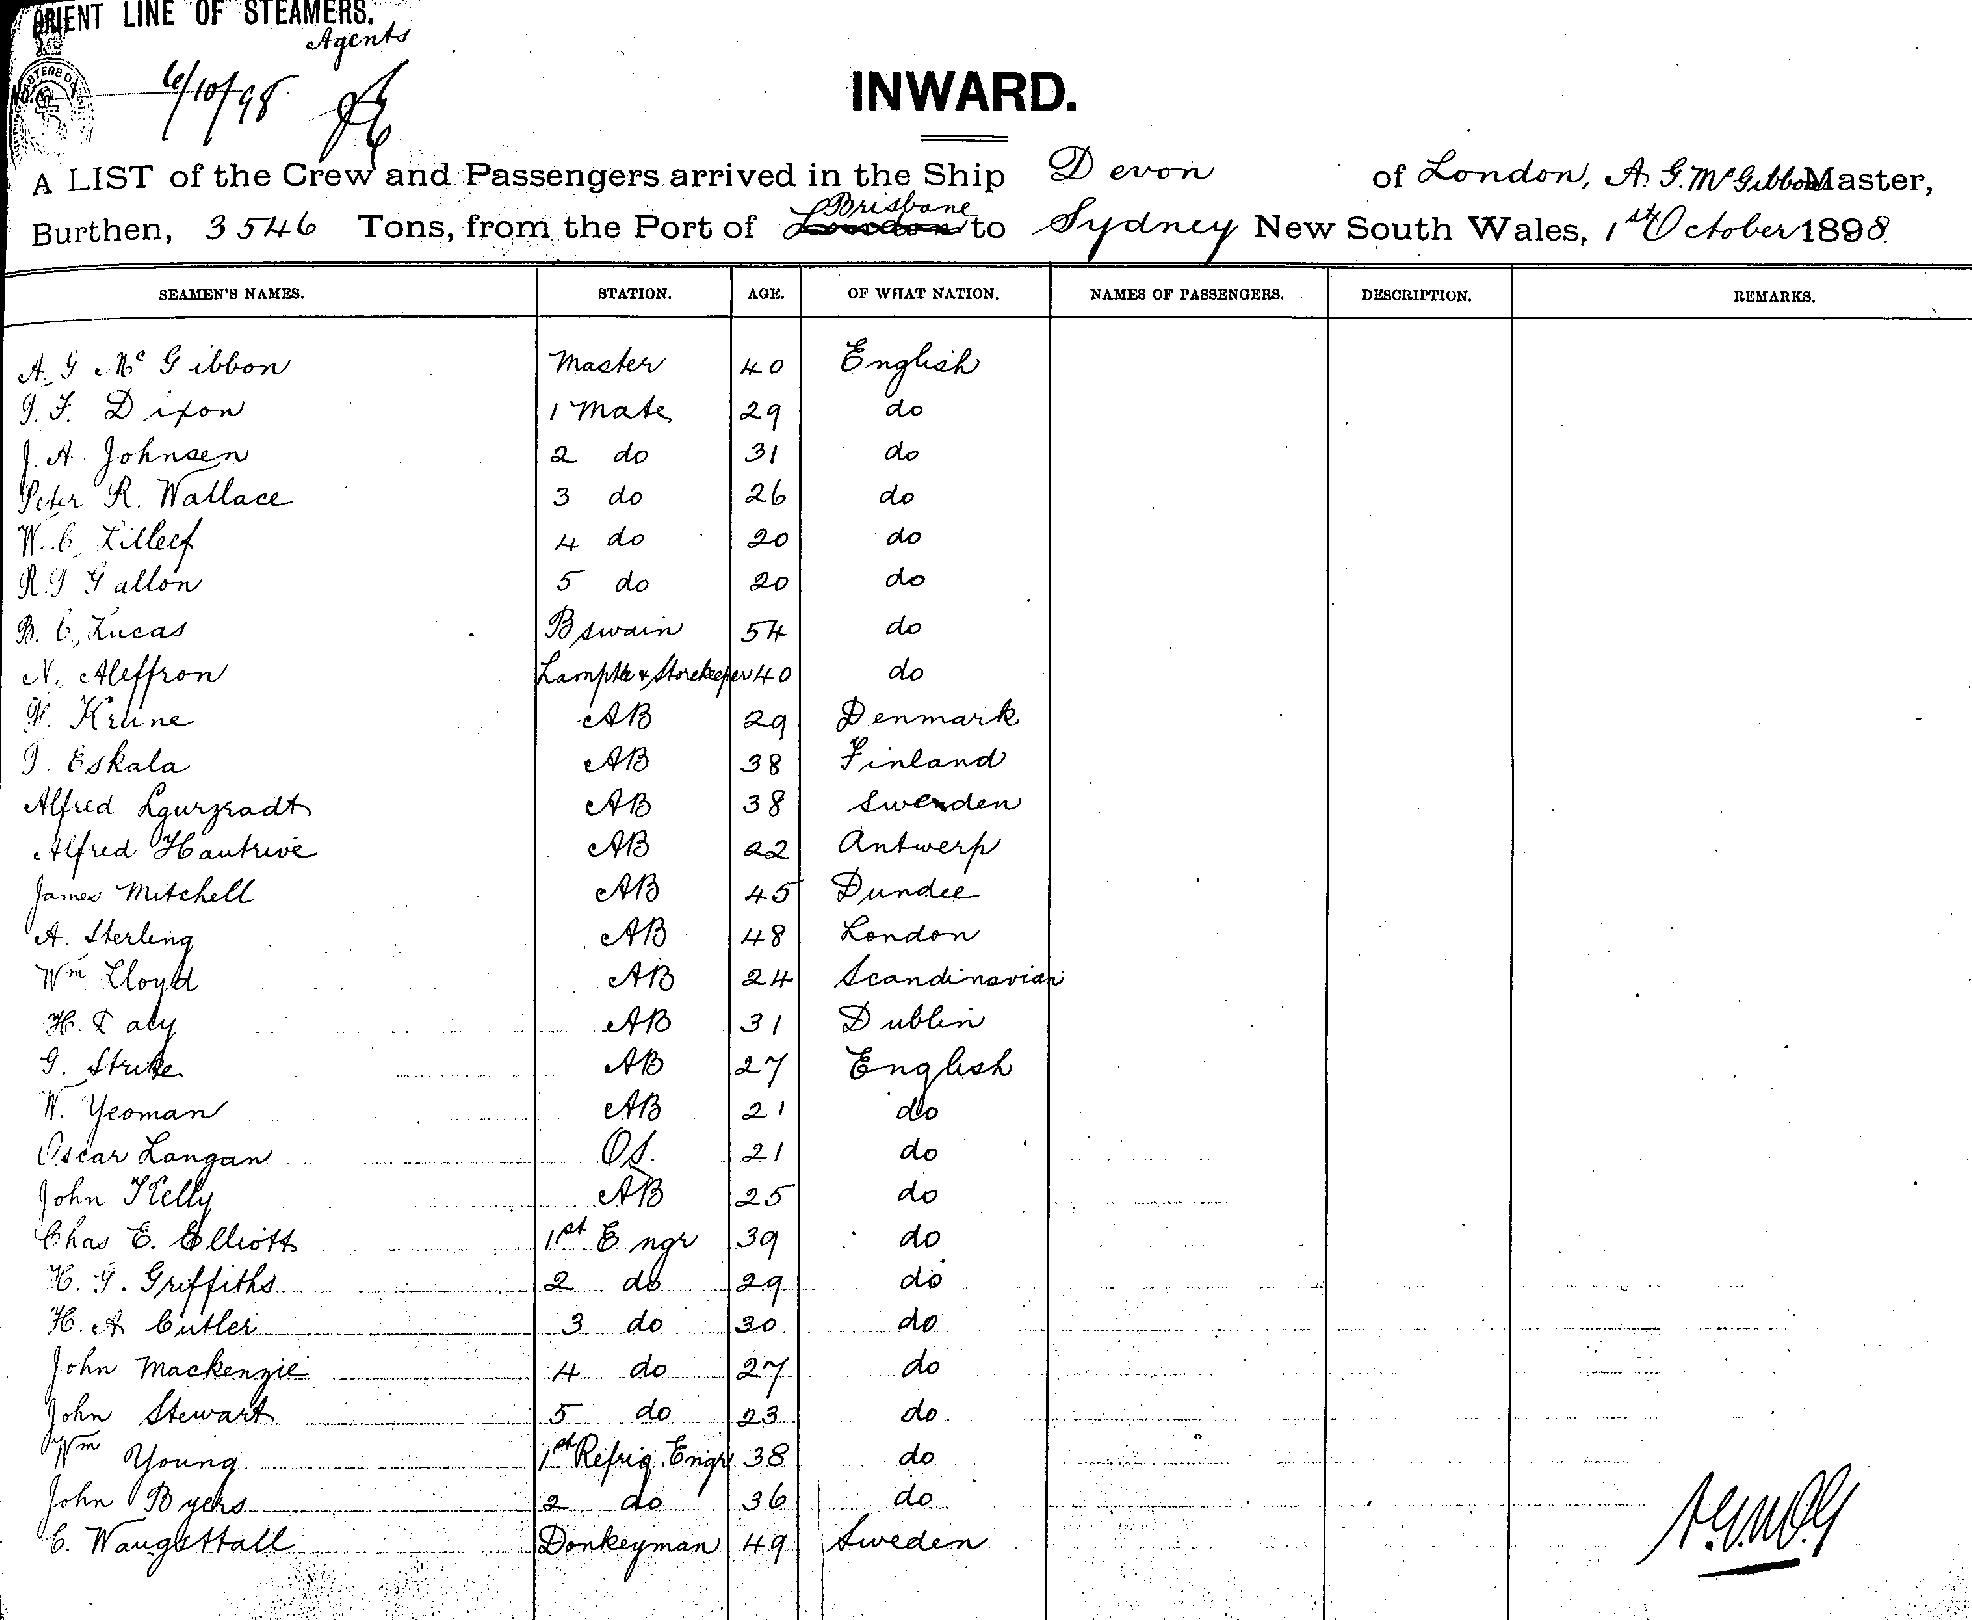 ORIENT LINE OF STEAMERS.
Agents
6/10/98
INWARD.
A LIST of the Crew and Passengers arrived in the Ship Devon of London, A. G. McGibbon Master,
Burthen, 3546 Tons, from the Port of London Brisbane to Sydney New South Wales, 1st October 1898.
SEAMEN'S NAMES. STATION. AGE. OF WHAT NATION. NAMES OF PASSENGERS. DESCRIPTION. REMARKS.
A. G Mc Gibbon Master 40 English
F. Dixon 1 Mate 29 do
J. A. Johnsen 2 do 31 do
Peter R. Wallace 3 do 26 do
W. C. 4 do 20 do
R. G Gallon 5 do 20 do
B. C. Lucas Bswain 54 do
N. Aleffron & Storekeeper 40 do
Krune AB 29 Denmark
Eskala AB 38 Finland
Alfred AB 38 Sweden
Alfred Hautrive AB 22 Antwerp
James Mitchell AB 45 Dundee
A. Sterling AB 48 London
Wm Lloyd AB 24 Scandinavian
H. AB 31 Dublin
G. Strike AB 27 English
W. Yeoman AB 21 do
Oscar Langan OS. 21 do
John Kelly AB 25 do
Chas E. Elliott 1st Engr 39 do
H. G. Griffiths 2 do 29 do
H. A Cutler 3 do 30 do
John Mackenzie 4 do 27 do
John Stewart 5 do 23 do
Wm Young 1st Refrig. Engr 38 do
John Byers 2 do 36 do
C. Donkeyman 49 Sweden